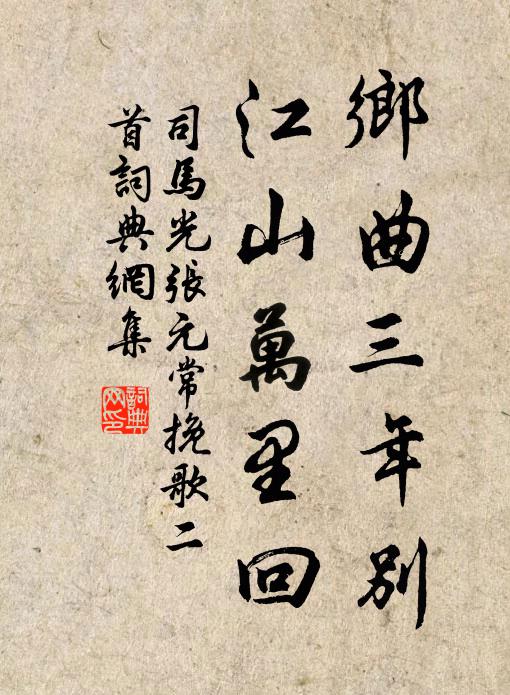 鄉曲三年別
江山萬里回
司馬光張元常挽歌二
首詞典網集
詞典
网印